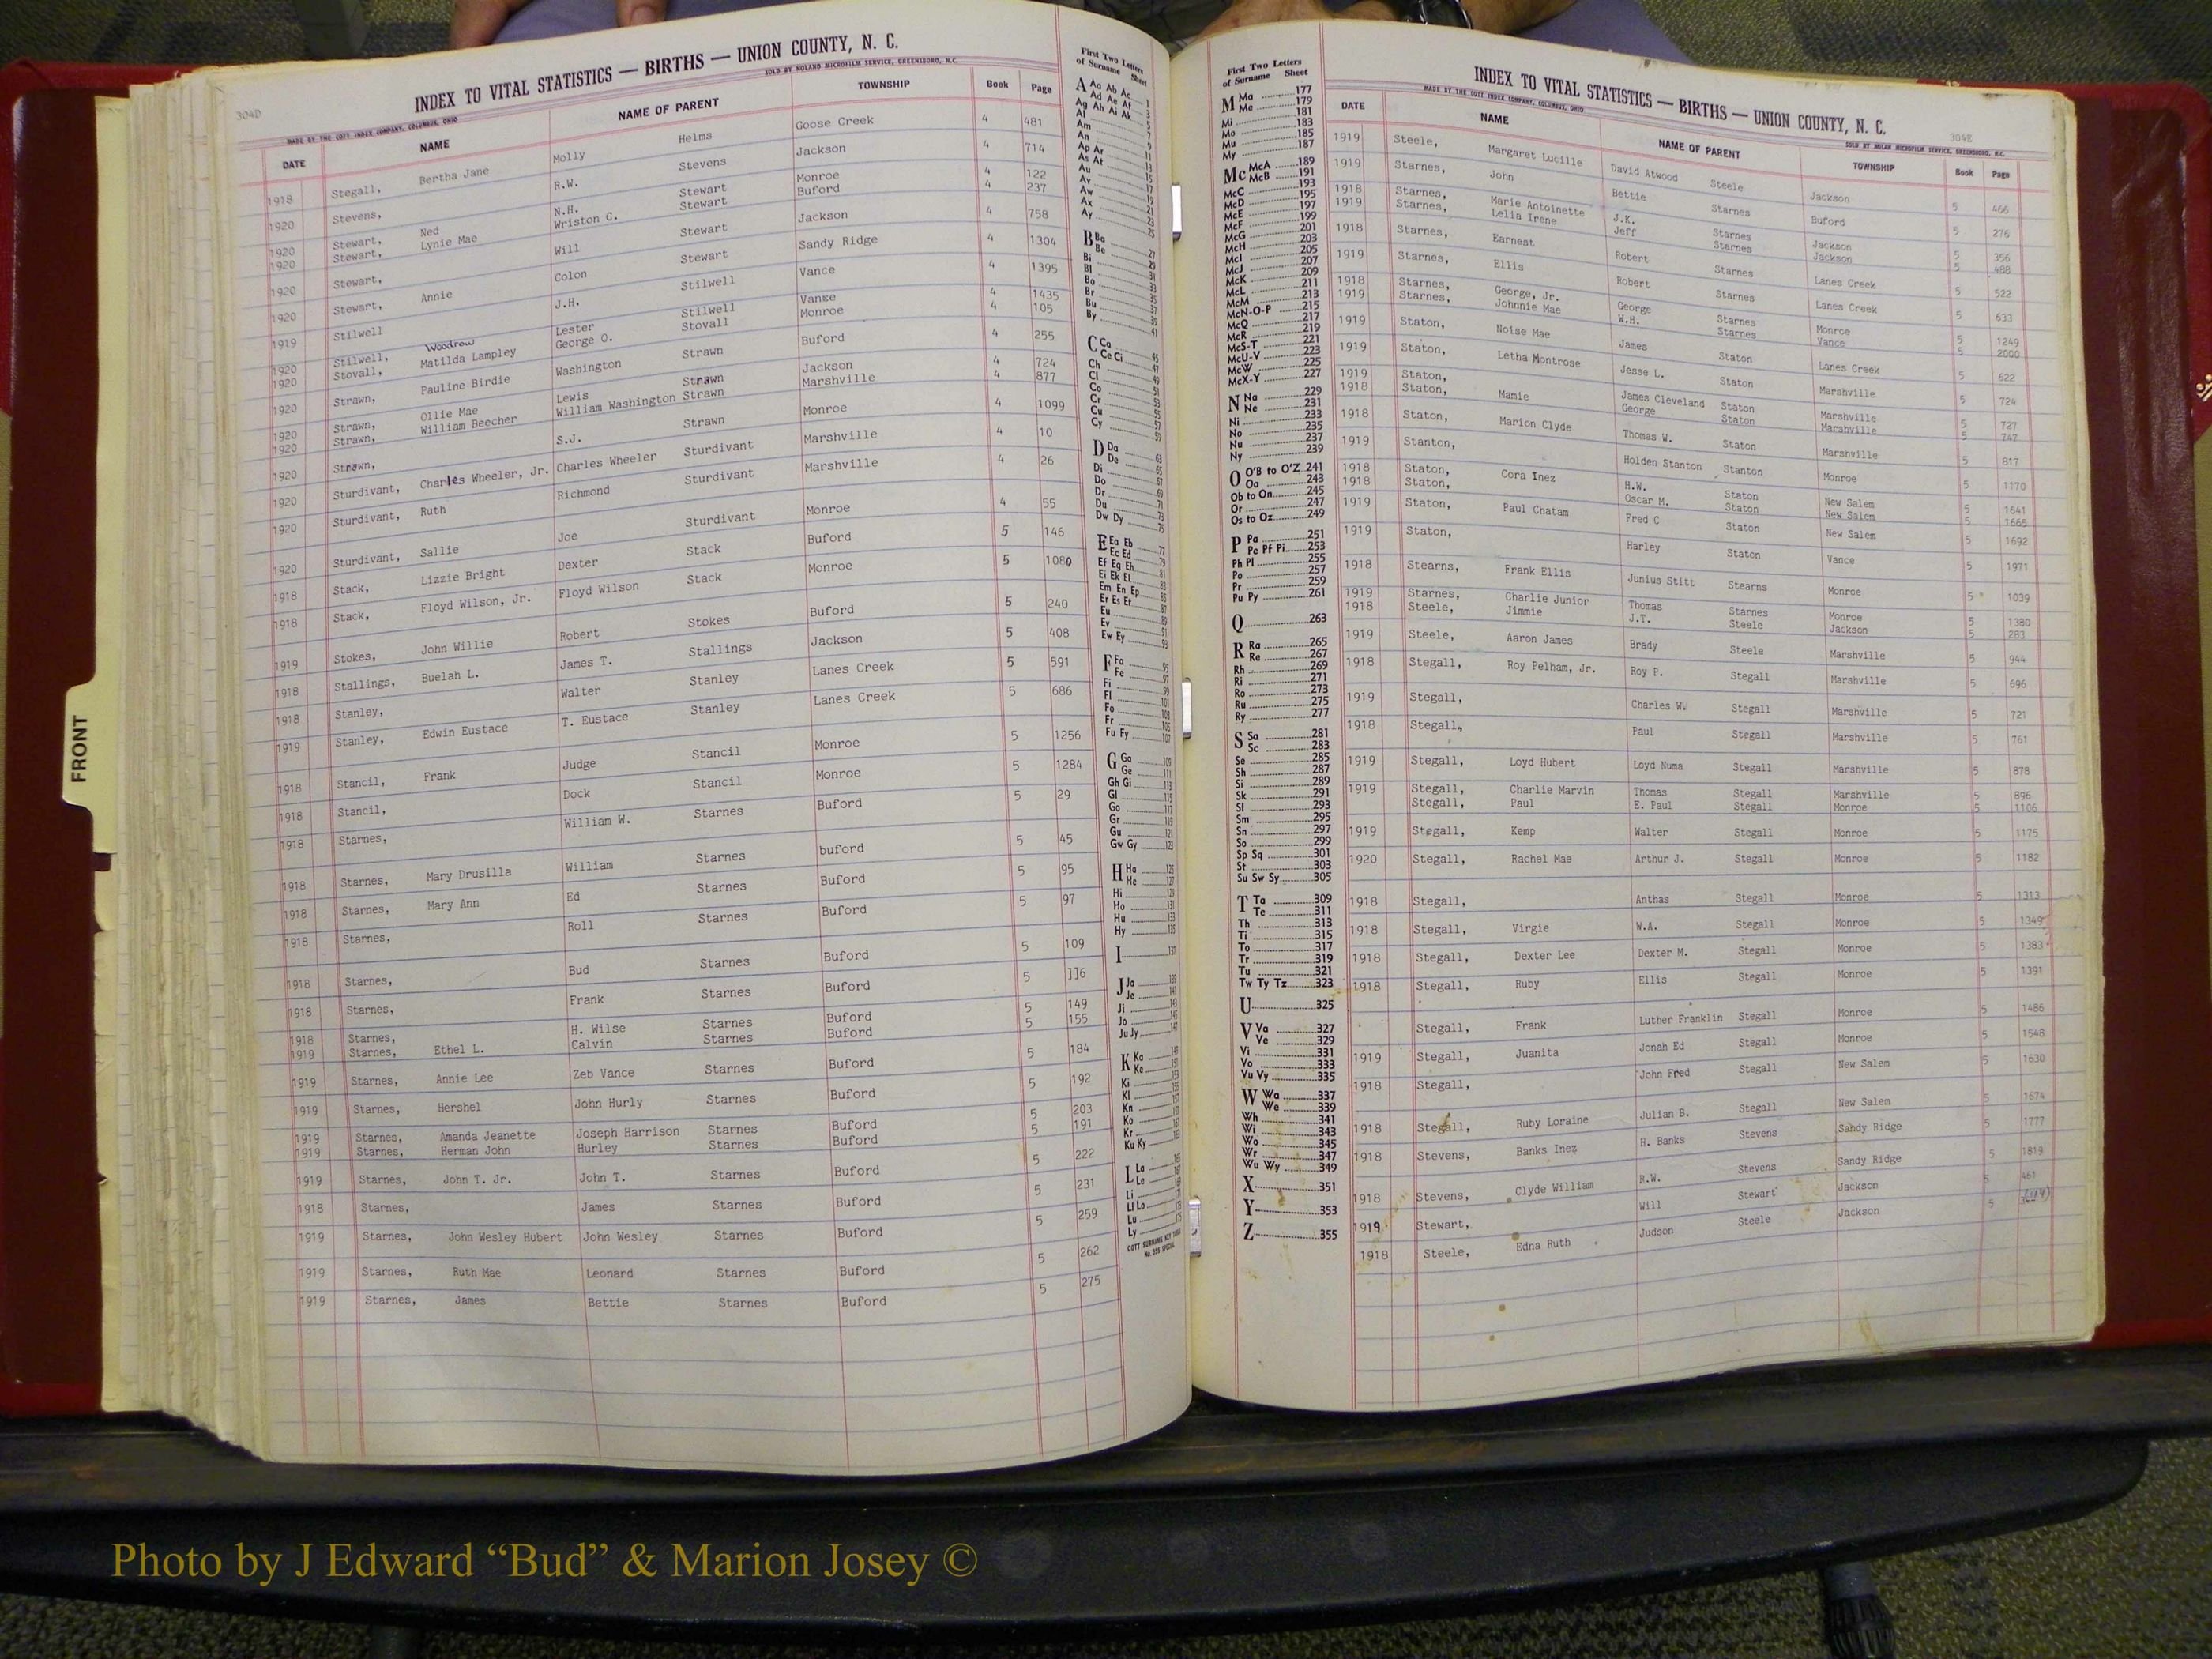 304D
INDEX TO VITAL STATISTICS — BIRTHS — UNION COUNTY, N. C.
MADE BY THE COTT INDEX COMPANY, COLUMBUS, OHIO SOLD BY NOLAND MICROFILM SERVICE, GREENSBORO, N.C.
DATE NAME NAME OF PARENT TOWNSHIP Book Page
1918 Stegall, Bertha Jane Molly Helms Goose Creek 4 481
1920 Stevens, R.W. Stevens Jackson 4 714
1920 Stewart, Ned N.H. Stewart Monroe 4 122
1920 Stewart, Lynie Mae Wriston C. Stewart Buford 4 237
1920 Stewart, Will Stewart Jackson 4 758
1920 Stewart, Annie Colon Stewart Sandy Ridge 4 1304
1919 Stilwell J.H. Stilwell Vance 4 1395
1920 Stilwell, Woodrow Lester Stilwell Vanse 4 1435
1920 Stovall, Matilda Lampley George O. Stovall Monroe 4 105
1920 Strawn, Pauline Birdie Washington Strawn Buford 4 255
1920 Strawn, Ollie Mae Lewis Strawn Jackson 4 724
1920 Strawn, William Beecher William Washington Strawn Marshville 4 877
1920 Strawn, S.J. Strawn Monroe 4 1099
1920 Sturdivant, Charles Wheeler, Jr. Charles Wheeler Sturdivant Marshville 4 10
1920 Sturdivant, Ruth Richmond Sturdivant Marshville 4 26
1920 Sturdivant, Sallie Joe Sturdivant Monroe 4 55
1918 Stack, Lizzie Bright Dexter Stack Buford 5 146
1918 Stack, Floyd Wilson, Jr. Floyd Wilson Stack Monroe 5 1080
1919 Stokes, John Willie Robert Stokes Buford 5 240
1918 Stallings, Buelah L. James T. Stallings Jackson 5 408
1918 Stanley, Walter Stanley Lanes Creek 5 591
1919 Stanley, Edwin Eustace T. Eustace Stanley Lanes Creek 5 686
1918 Stancil, Frank Judge Stancil Monroe 5 1256
1918 Stancil, Dock Stancil Monroe 5 1284
1918 Starnes, William W. Starnes Buford 5 29
1918 Starnes, Mary Drusilla William Starnes buford 5 45
1918 Starnes, Mary Ann Ed Starnes Buford 5 95
1918 Starnes, Roll Starnes Buford 5 97
1918 Starnes, Bud Starnes Buford 5 109
1918 Starnes, Frank Starnes Buford 5 ]]6
1918 Starnes, H. Wilse Starnes Buford 5 149
1919 Starnes, Ethel L. Calvin Starnes Buford 5 155
1919 Starnes, Annie Lee Zeb Vance Starnes Buford 5 184
1919 Starnes, Hershel John Hurly Starnes Buford 5 192
1919 Starnes, Amanda Jeanette Joseph Harrison Starnes Buford 5 203
1919 Starnes, Herman John Hurley Starnes Buford 5 191
1919 Starnes, John T. Jr. John T. Starnes Buford 5 222
1918 Starnes, James Starnes Buford 5 231
1919 Starnes, John Wesley Hubert John Wesley Starnes Buford 5 259
1919 Starnes, Ruth Mae Leonard Starnes Buford 5 262
1919 Starnes, James Bettie Starnes Buford 5 275
FRONT
First Two Letters
of Surname Sheet
A Aa Ab Ac 1
Ad Ae Af 3
Ag Ah Ai Ak 5
Al 7
Am 9
An 11
Ap Ar 13
As At 15
Au 17
Av 19
Aw 21
Ax 23
Ay 25
B Ba 27
Be 29
Bi 31
Bl 33
Bo 35
Br 37
Bu 39
By 41
C Ca 45
Ce Ci 47
Ch 49
Cl 51
Co 53
Cr 55
Cu 57
Cy 59
D Da 63
De 65
Di 67
Do 69
Dr 71
Du 73
Dw Dy 75
E Ea Eb 77
Ec Ed 79
Ef Eg Eh 81
Ei Ek El 83
Em En Ep 85
Er Es Et 87
Eu 89
Ev 91
Ew Ey 93
F Fa 95
Fe 97
Fi 99
Fl 101
Fo 103
Fr 105
Fu Fy 107
G Ga 109
Ge 111
Gh Gi 113
Gl 115
Go 117
Gr 119
Gu 121
Gw Gy 123
H Ha 125
He 127
Hi 129
Ho 131
Hu 133
Hy 135
I 137
J Ja 139
Je 141
Ji 143
Jo 145
Ju Jy 147
K Ka 149
Ke 151
Ki 153
Kl 155
Kn 157
Ko 159
Kr 161
Ku Ky 163
L La 165
Le 167
Li 169
Ll Lo 171
Lu 173
Ly 175
COTT SURNAME KEY TABLE
No. 205 SPECIAL
First Two Letters
of Surname Sheet
M Ma 177
Me 179
Mi 181
Mo 183
Mu 185
My 187
Mc McA 189
McB 191
McC 193
McD 195
McE 197
McF 199
McG 201
McH 203
McI 205
McJ 207
McK 209
McL 211
McM 213
McN-O-P 215
McQ 217
McR 219
McS-T 221
McU-V 223
McW 225
McX-Y 227
N Na 229
Ne 231
Ni 233
No 235
Nu 237
Ny 239
O O'B to O'Z 241
Oa 243
Ob to On 245
Or 247
Os to Oz 249
P Pa 251
Pe Pf Pi 253
Ph Pl 255
Po 257
Pr 259
Pu Py 261
Q 263
R Ra 265
Re 267
Rh 269
Ri 271
Ro 273
Ru 275
Ry 277
S Sa 281
Sc 283
Se 285
Sh 287
Si 289
Sk 291
Sl 293
Sm 295
Sn 297
So 299
Sp Sq 301
St 303
Su Sw Sy 305
T Ta 309
Te 311
Th 313
Ti 315
To 317
Tr 319
Tu 321
Tw Ty Tz 323
U 325
V Va 327
Ve 329
Vi 331
Vo 333
Vu Vy 335
W Wa 337
We 339
Wh 341
Wi 343
Wo 345
Wr 347
Wu Wy 349
X 351
Y 353
Z 355
INDEX TO VITAL STATISTICS — BIRTHS — UNION COUNTY, N. C.
304E
MADE BY THE COTT INDEX COMPANY, COLUMBUS, OHIO SOLD BY NOLAN MICROFILM SERVICE, GREENSBORO, N.C.
DATE NAME NAME OF PARENT TOWNSHIP Book Page
1919 Steele, Margaret Lucille David Atwood Steele Jackson 5 466
1919 Starnes, John Bettie Starnes Buford 5 276
1918 Starnes, Marie Antoinette J.K. Starnes Jackson 5 356
1919 Starnes, Lelia Irene Jeff Starnes Jackson 5 488
1918 Starnes, Earnest Robert Starnes Lanes Creek 5 522
1919 Starnes, Ellis Robert Starnes Lanes Creek 5 633
1918 Starnes, George, Jr. George Starnes Monroe 5 1249
1919 Starnes, Johnnie Mae W.H. Starnes Vance 5 2000
1919 Staton, Noise Mae James Staton Lanes Creek 5 622
1919 Staton, Letha Montrose Jesse L. Staton Marshville 5 724
1919 Staton, James Cleveland Staton Marshville 5 727
1918 Staton, Mamie George Staton Marshville 5 747
1918 Staton, Marion Clyde Thomas W. Staton Marshville 5 817
1919 Stanton, Holden Stanton Stanton Monroe 5 1170
1918 Staton, Cora Inez H.W. Staton New Salem 5 1641
1918 Staton, Oscar M. Staton New Salem 5 1665
1919 Staton, Paul Chatam Fred C Staton New Salem 5 1692
1919 Staton, Harley Staton Vance 5 1971
1918 Stearns, Frank Ellis Junius Stitt Stearns Monroe 5 1039
1919 Starnes, Charlie Junior Thomas Starnes Monroe 5 1380
1918 Steele, Jimmie J.T. Steele Jackson 5 283
1919 Steele, Aaron James Brady Steele Marshville 5 944
1918 Stegall, Roy Pelham, Jr. Roy P. Stegall Marshville 5 696
1919 Stegall, Charles W. Stegall Marshville 5 721
1918 Stegall, Paul Stegall Marshville 5 761
1919 Stegall, Loyd Hubert Loyd Numa Stegall Marshville 5 878
1919 Stegall, Charlie Marvin Thomas Stegall Marshville 5 896
Stegall, Paul E. Paul Stegall Monroe 5 1106
1919 Stegall, Kemp Walter Stegall Monroe 5 1175
1920 Stegall, Rachel Mae Arthur J. Stegall Monroe 5 1182
1918 Stegall, Anthas Stegall Monroe 5 1313
1918 Stegall, Virgie W.A. Stegall Monroe 5 1349
1918 Stegall, Dexter Lee Dexter M. Stegall Monroe 5 1383
1918 Stegall, Ruby Ellis Stegall Monroe 5 1391
Stegall, Frank Luther Franklin Stegall Monroe 5 1486
1919 Stegall, Juanita Jonah Ed Stegall Monroe 5 1548
1918 Stegall, John Fred Stegall New Salem 5 1630
1918 Stegall, Ruby Loraine Julian B. Stegall New Salem 5 1674
1918 Stevens, Banks Inez H. Banks Stevens Sandy Ridge 5 1777
1918 Stevens, Clyde William R.W. Stevens Sandy Ridge 5 1819
1919 Stewart, Will Stewart Jackson 5 461
1918 Steele, Edna Ruth Judson Steele Jackson 5
Photo by J Edward “Bud” & Marion Josey ©